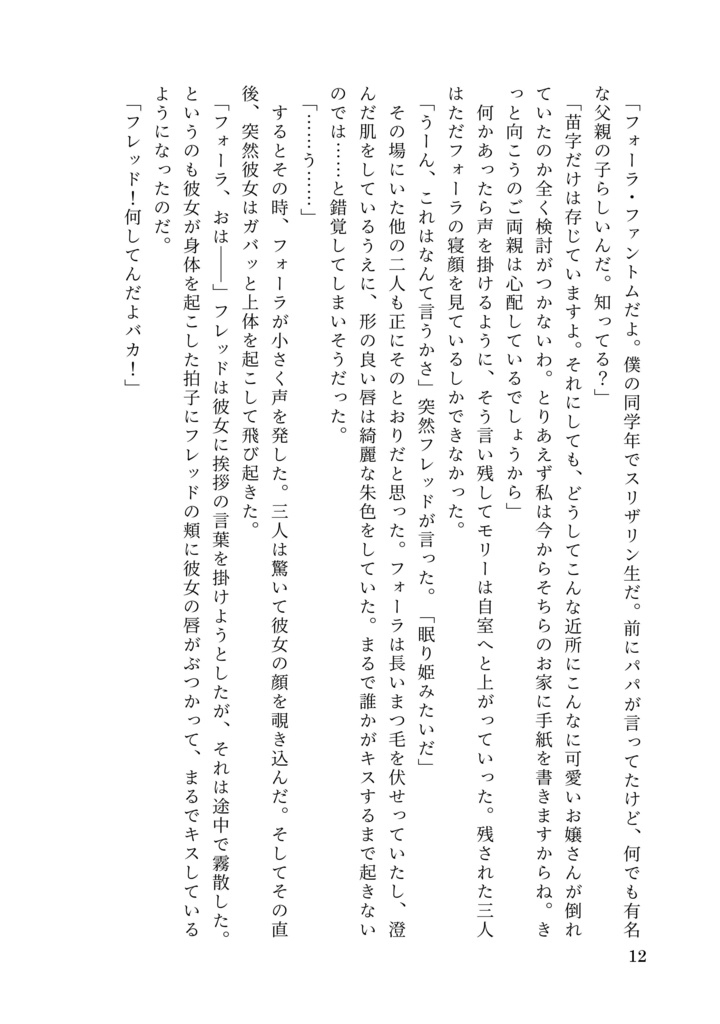 「フォーラ・ファントムだよ。僕の同学年でスリザリン生だ。前にパパが言ってたけど、何でも有名
な父親の子らしいんだ。知ってる？」
「苗字だけは存じていますよ。それにしても、どうしてこんな近所にこんなに可愛いお嬢さんが倒れ
ていたのか全く検討がつかないわ。とりあえず私は今からそちらのお家に手紙を書きますからね。き
っと向こうのご両親は心配しているでしょうから」
何かあったら声を掛けるように、そう言い残してモリーは自室へと上がっていった。残された三人
はただフォーラの寝顔を見ているしかできなかった。
「うーん、これはなんて言うかさ」突然フレッドが言った。「眠り姫みたいだ」
その場にいた他の二人も正にそのとおりだと思った。フォーラは長いまつ毛を伏せっていたし、澄
んだ肌をしているうえに、形の良い唇は綺麗な朱色をしていた。まるで誰かがキスするまで起きない
のでは……と錯覚してしまいそうだった。
「……う……」
するとその時、フォーラが小さく声を発した。三人は驚いて彼女の顔を覗き込んだ。そしてその直
後、突然彼女はガバッと上体を起こして飛び起きた。
「フォーラ、おは――」フレッドは彼女に挨拶の言葉を掛けようとしたが、それは途中で霧散した。
というのも彼女が身体を起こした拍子にフレッドの頬に彼女の唇がぶつかって、まるでキスしている
ようになったのだ。
「フレッド！何してんだよバカ！」
12